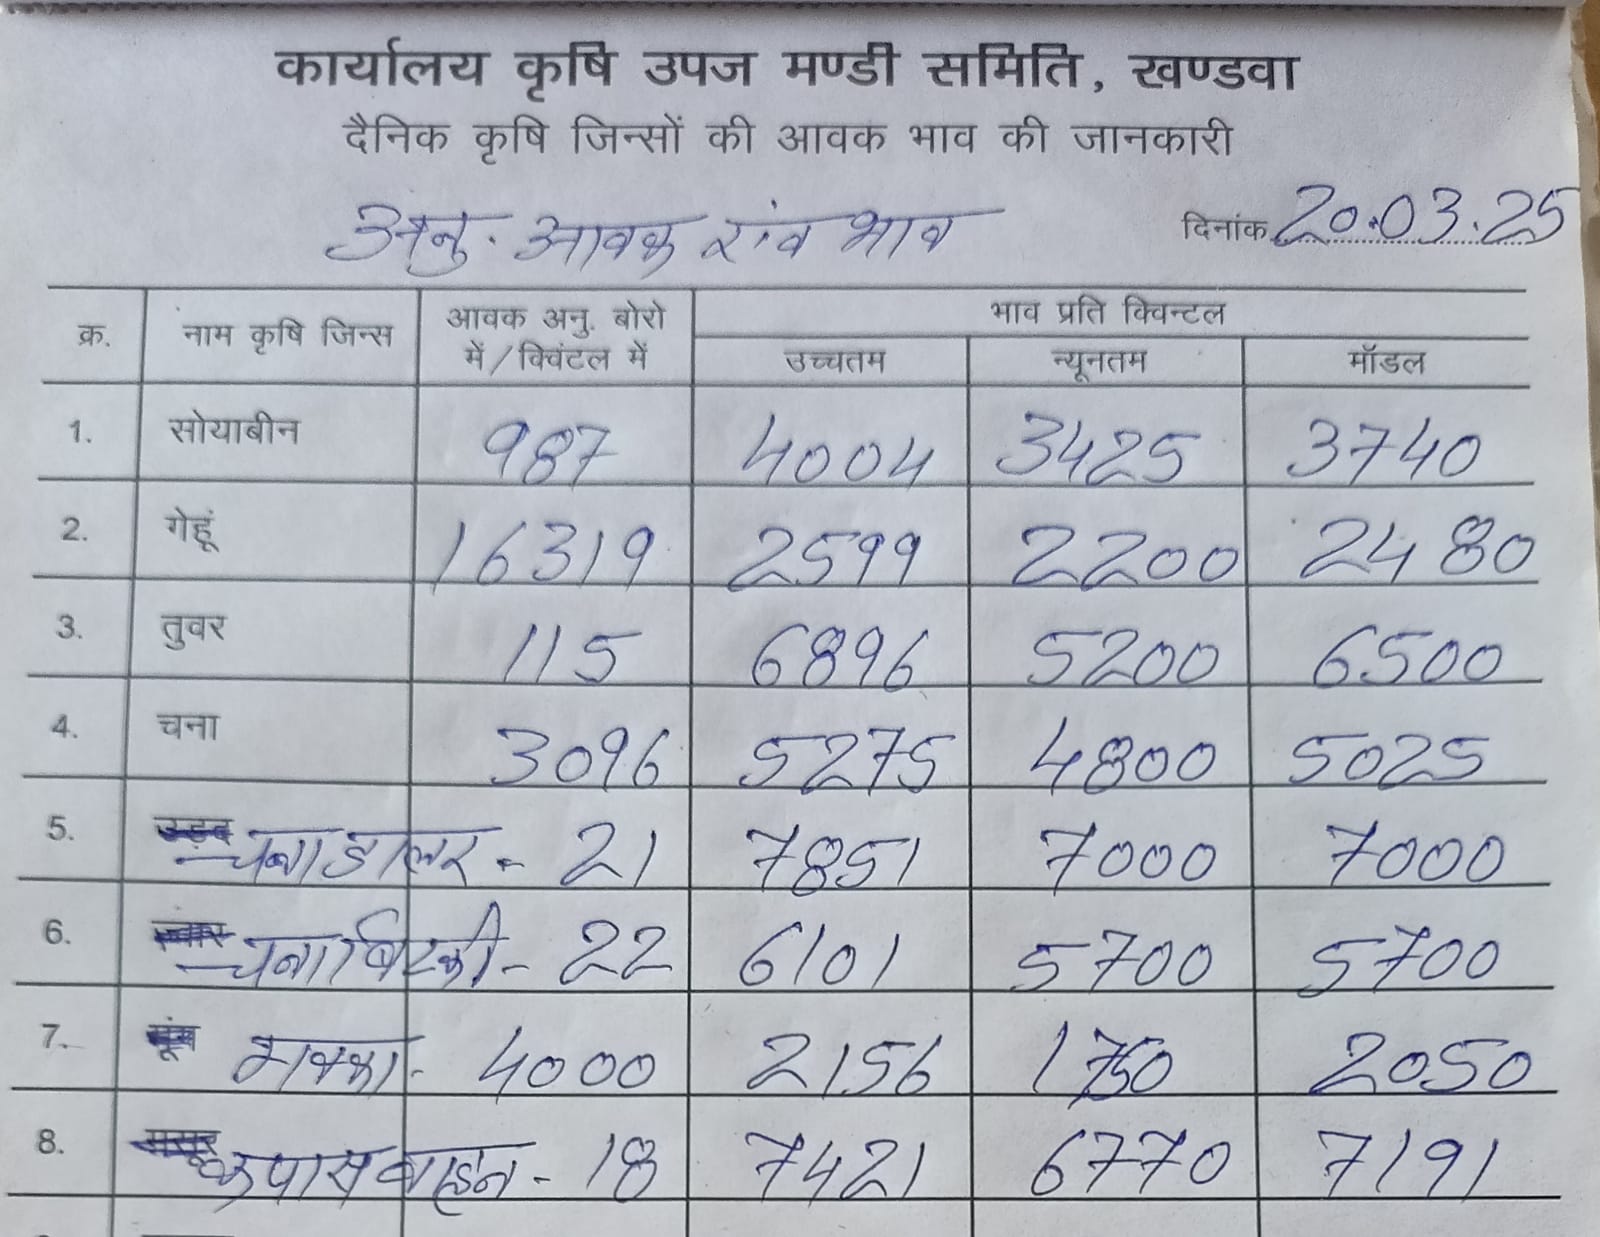 कार्यालय कृषि उपज मण्डी समिति, खण्डवा
दैनिक कृषि जिन्सों की आवक भाव की जानकारी
अनु. आवक एंव भाव दिनांक 20.03.25
क्र. नाम कृषि जिन्स आवक अनु. बोरो में/क्विंटल में भाव प्रति क्विन्टल
उच्चतम न्यूनतम मॉडल
1. सोयाबीन 987 4004 3425 3740
2. गेहूं 16319 2599 2200 2480
3. तुवर 115 6896 5200 6500
4. चना 3096 5275 4800 5025
5. उड़द चना डालर - 21 7851 7000 7000
6. ज्वार चना बिटकी - 22 6101 5700 5700
7. मूंग मक्का - 4000 2156 1750 2050
8. मसूर कपास वाहन - 18 7421 6770 7191